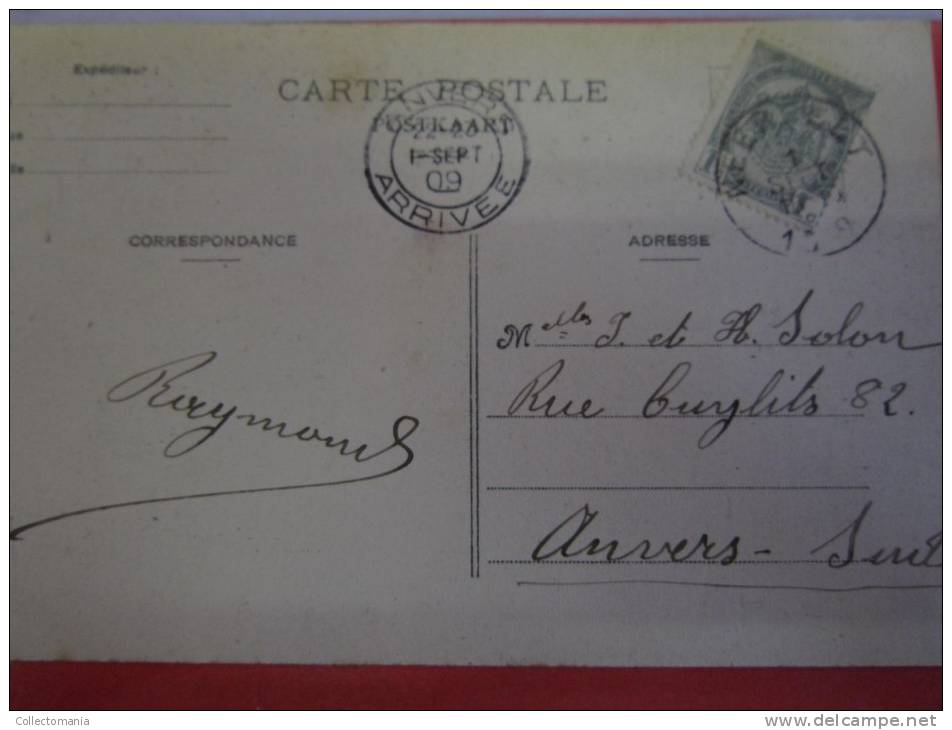 Expéditeur :
CARTE POSTALE
POSTKAART
ANVERS
1-SEPT
09
ARRIVÉE
CORRESPONDANCE
ADRESSE
Melles J. et H. Solon
Rue 82.
Raymond
Anvers - Sud
Collectomania
www.delcampe.net